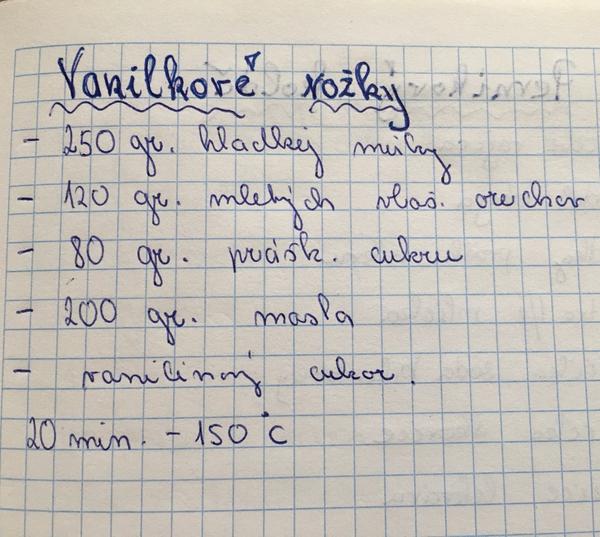 Vanilkové rožky
- 250 gr. hladkej múky
- 120 gr. mletých vlaš. orechov
- 80 gr. prášk. cukru
- 200 gr. masla
- vanilínový cukor.
20 min. - 150°C